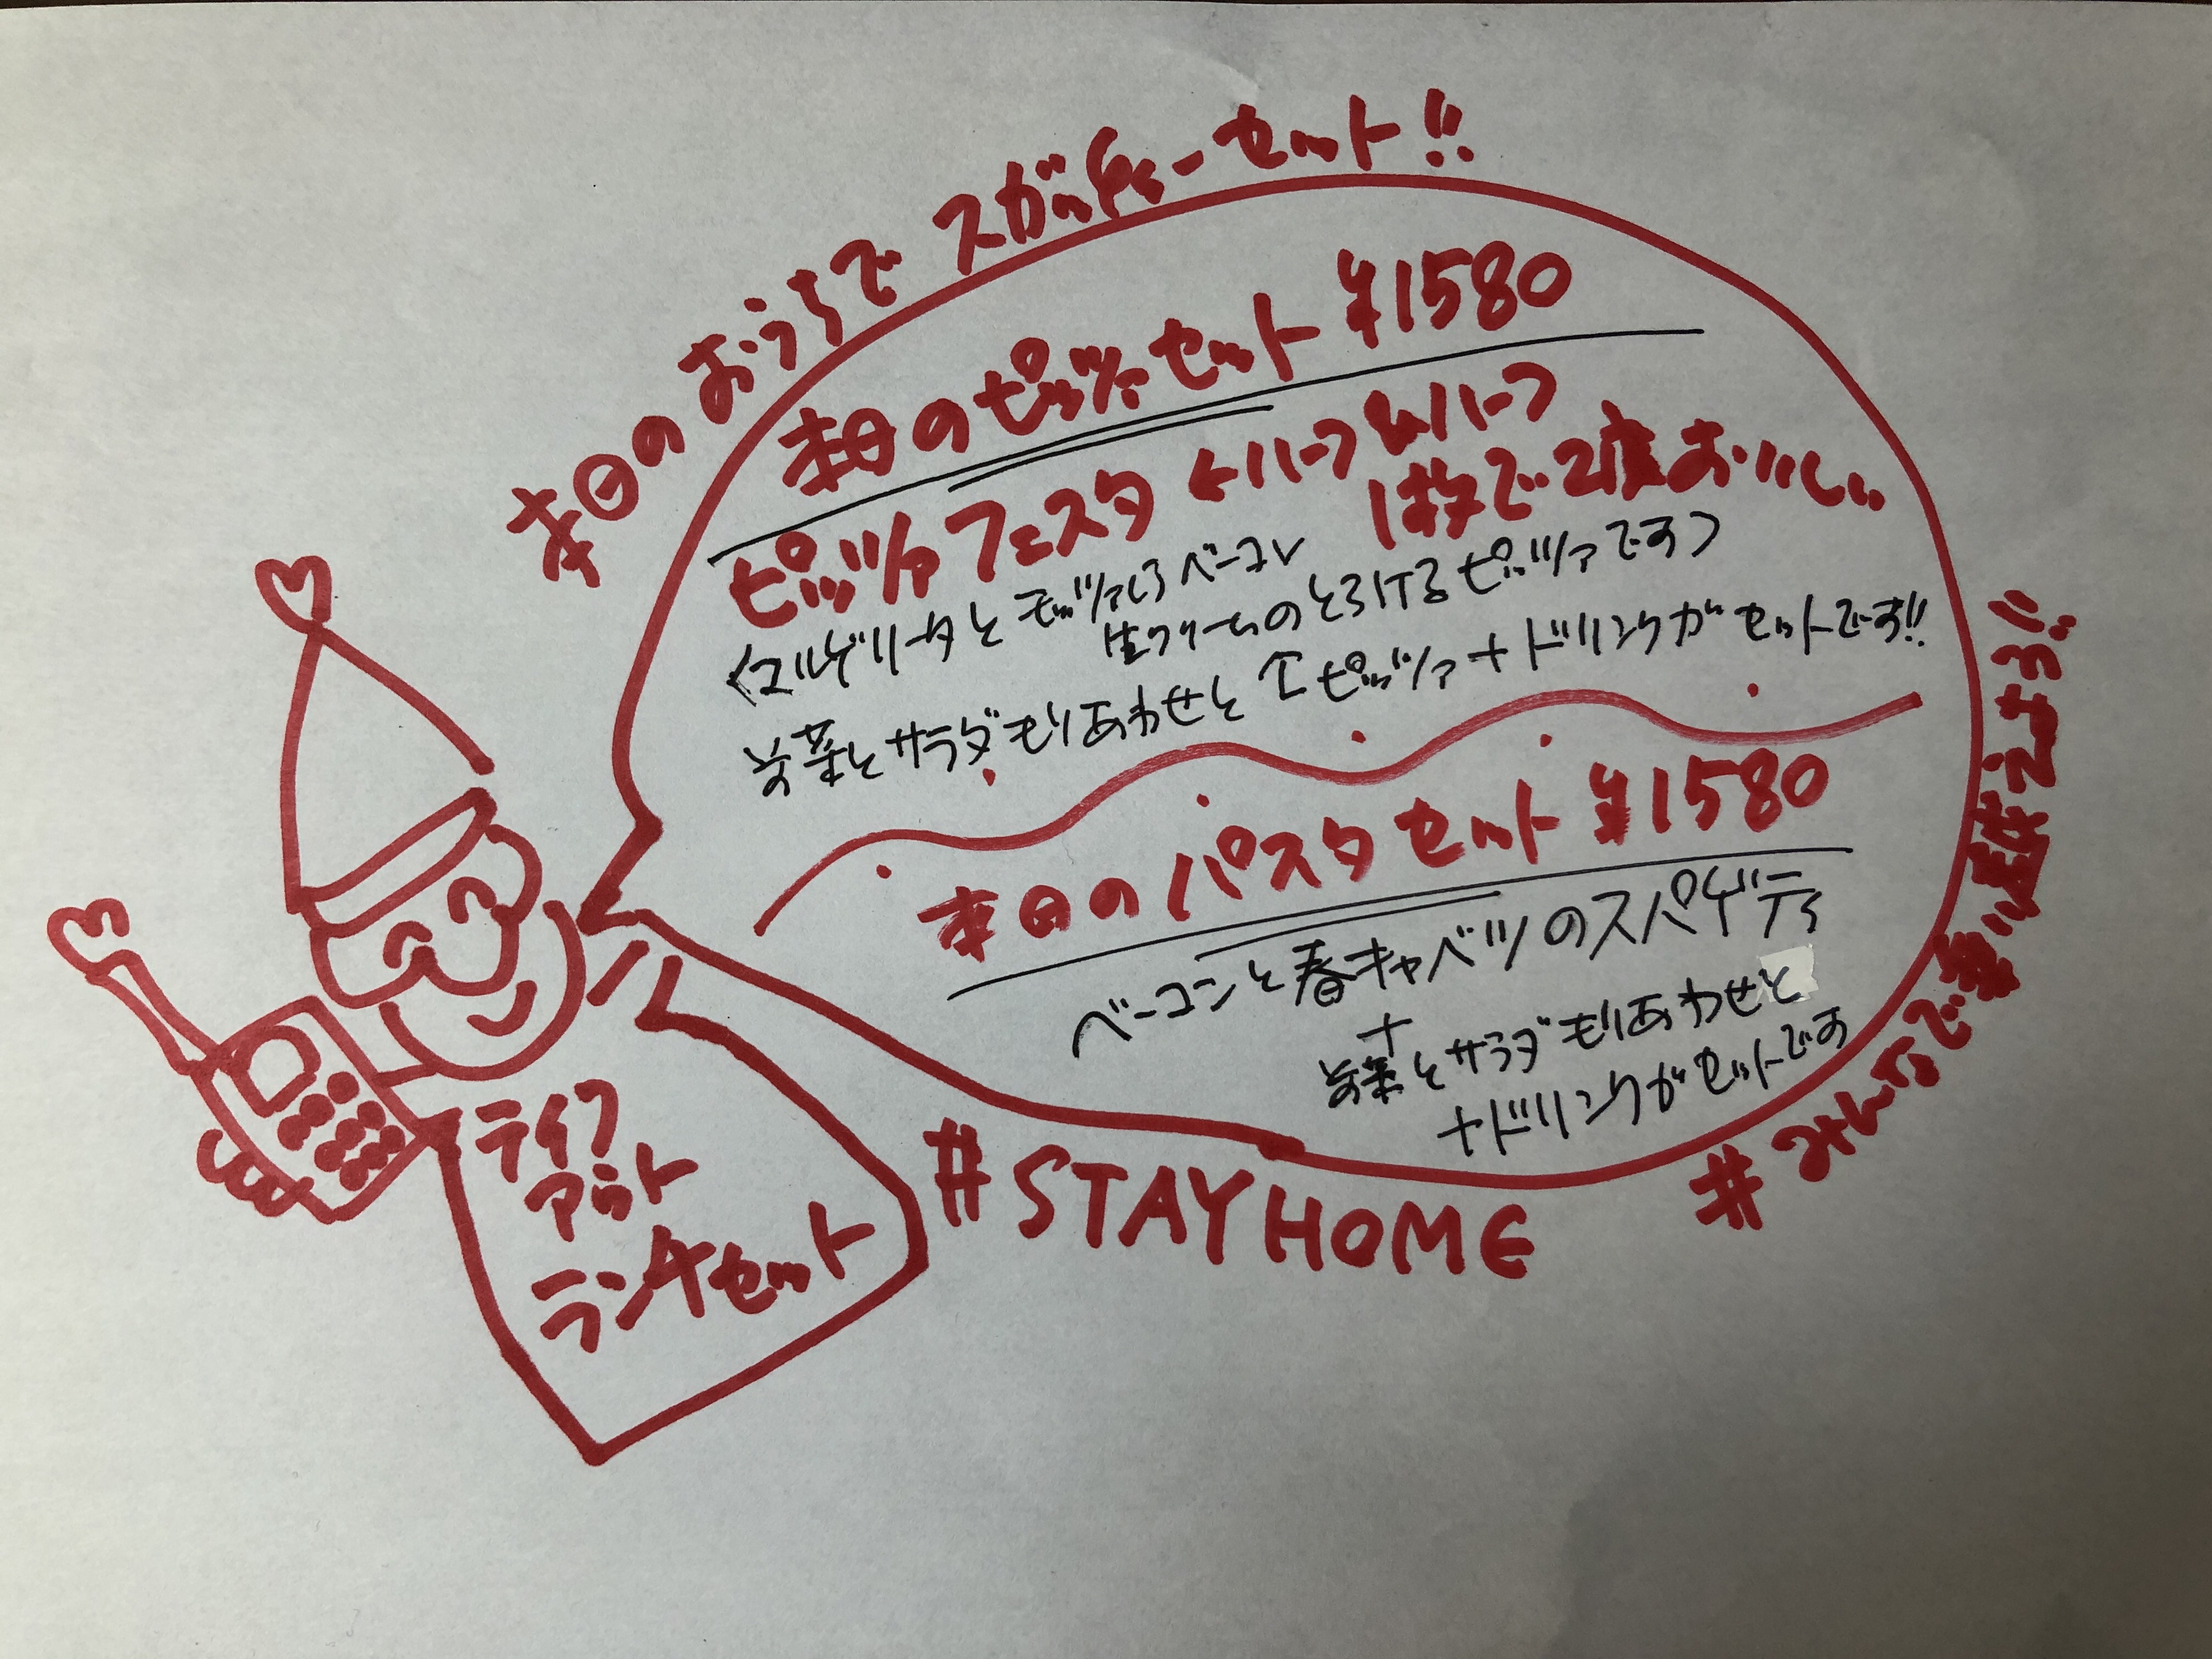 本日のおうちでスガッティーセット!!
本日のピッツァセット ¥1580
ピッツァフェスタ ←ハーフ&ハーフ
1枚で2度おいしい
〈マルゲリータとモッツァレラベーコン
生クリームのとろけるピッツァです〉
前菜とサラダもりあわせと
↑ピッツァ+ドリンクがセットです!!
本日のパスタセット ¥1580
ベーコンと春キャベツのスパゲティ
+
前菜とサラダもりあわせと
+ドリンクがセットです
テイク
アウト
ランチセット
#STAY HOME
#みんなで乗り越えよう!!